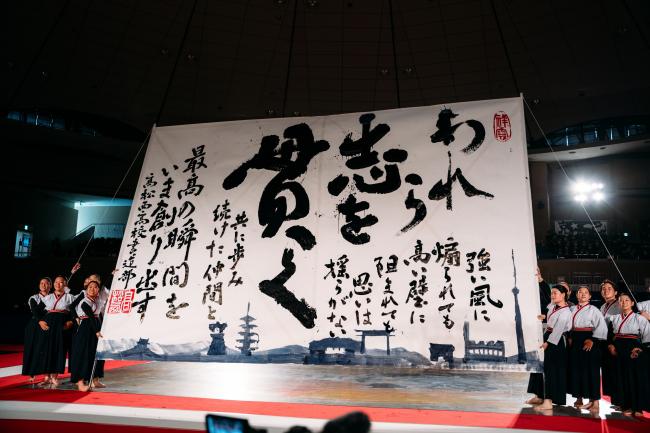 われら
志を
貫く
強い風に
煽られても
高い壁に
阻まれても
思いは
揺らがない
共に歩み
続けた仲間と
最高の瞬間を
いま創り出す
高松西高校書道部